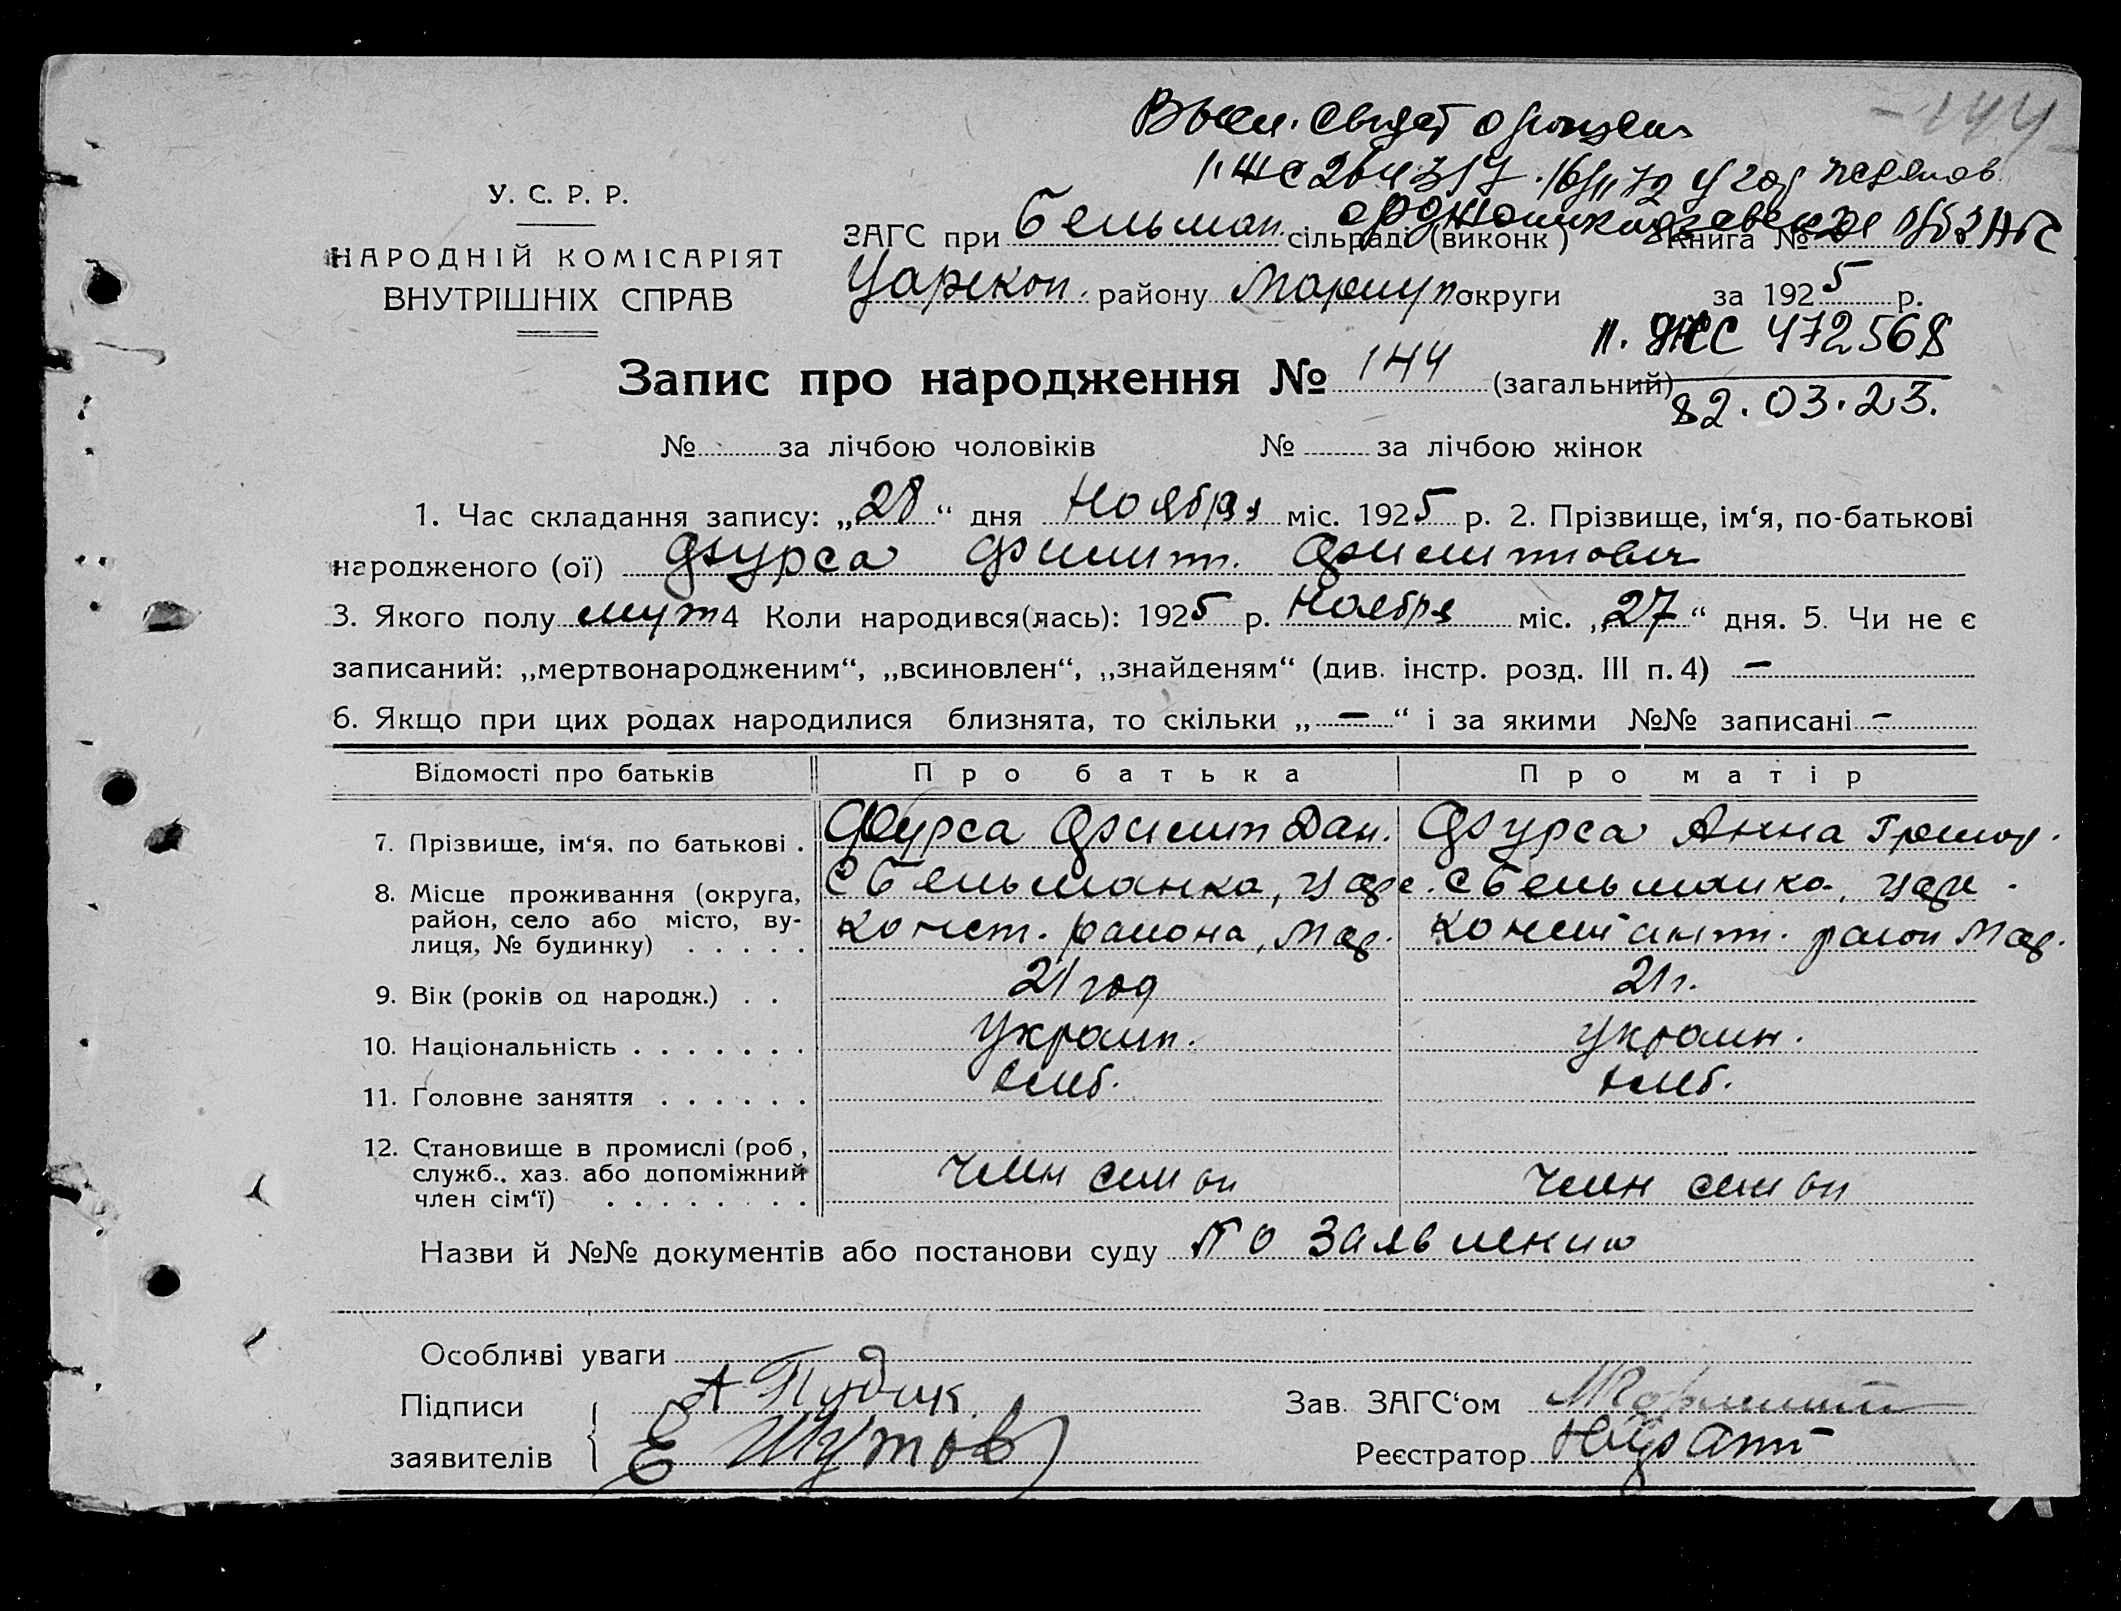 - 144
Выси. свидет о рожден
I. ЖС 264317. 16/II 72 г
Орджоникидзевское ЗАГС
У. С. Р. Р.
НАРОДНІЙ КОМІСАРІЯТ
ВНУТРІШНІХ СПРАВ
ЗАГС при Бельман. сільраді (виконк) Книга №
Царекон. району Мариуп округи за 1925 р.
II. ЖС 472568
82.03.23.
Запис про народження № 144 (загальний)
№ за лічбою чоловіків № за лічбою жінок
1. Час складання запису: „28“ дня Ноября міс. 1925 р. 2. Прізвище, ім‘я, по-батькові
народженого (ої) Фурса Филип. Филиппович
3. Якого полу муж 4 Коли народився(лась): 1925 р. Ноября міс. „27“ дня. 5. Чи не є
записаний: „мертвонародженим“, „всиновлен“, „знайденям“ (див. інстр. розд. III п. 4) —
6. Якщо при цих родах народилися близнята, то скільки „—“ і за якими №№ записані —
Відомості про батьків Про батька Про матір
7. Прізвище, ім‘я, по батькові . Фурса Филип Дан. Фурса Анна Григор.
8. Місце проживання (округа, С Бельманка, Царе. С Бельманка, Царе.
район, село або місто, ву- конст. района, Мар. Константи. район Мар.
лиця, № будинку) . . . . .
9. Вік (років од народж.) . . 21 год 21 г.
10. Національність . . . . . . . Украин. Украин.
11. Головне заняття . . . . . . Хлеб. Хлеб.
12. Становище в промислі (роб,
служб., хаз. або допоміжний член семьи член семьи
член сім‘ї) . . . . . . . .
Назви й №№ документів або постанови суду По заявлению
Особливі уваги
Підписи А Пудик Зав. ЗАГС‘ом
заявителів Е Шутов Реєстратор